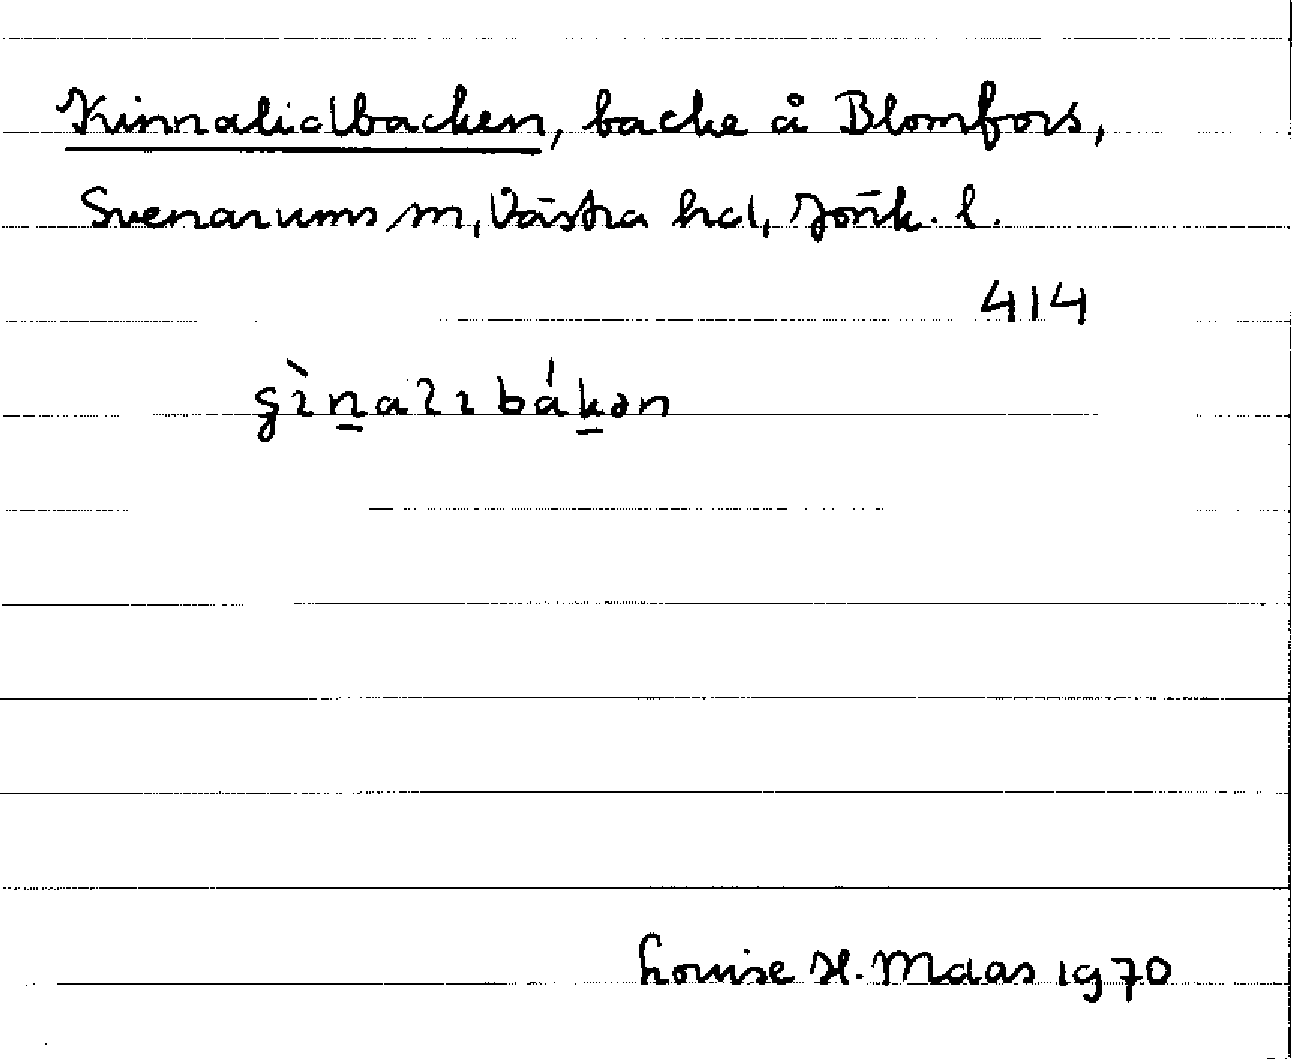 Kinnalidbacken, backe å Blomfors,
Svenarums sn, Västra hd, Jönk. l.
414
Louise H. Maas 1970